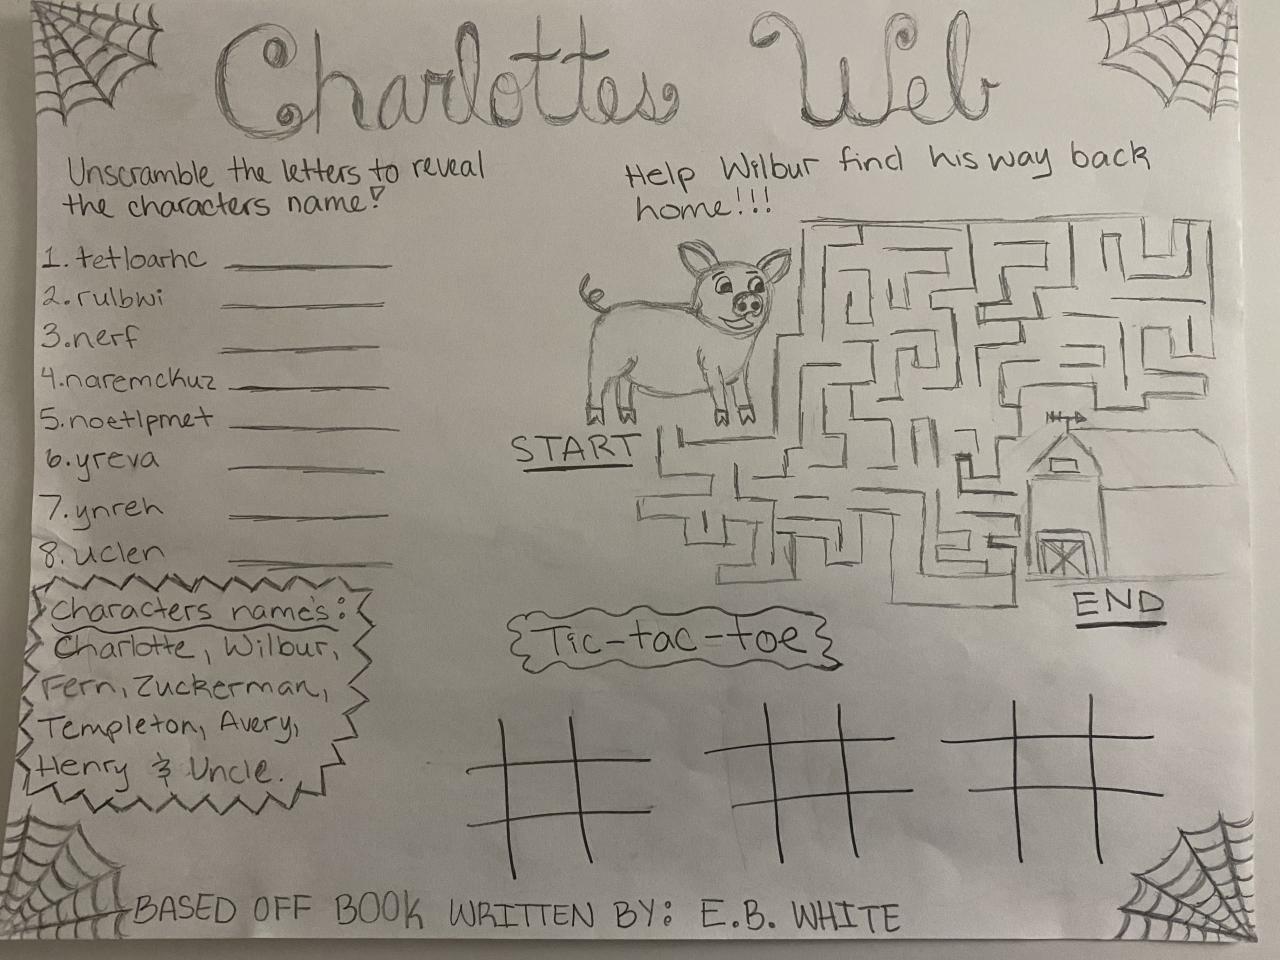 Charlottes Web
Unscramble the letters to reveal
the characters name!
1. tetloarhc
2. rulbwi
3. nerf
4. naremckuz
5. noetlpmet
6. yreva
7. ynreh
8. uclen
Characters name's:
Charlotte, Wilbur,
Fern, Zuckerman,
Templeton, Avery,
Henry & Uncle.
Help Wilbur find his way back
home!!!
START
END
Tic-tac-toe
BASED OFF BOOK WRITTEN BY: E.B. WHITE